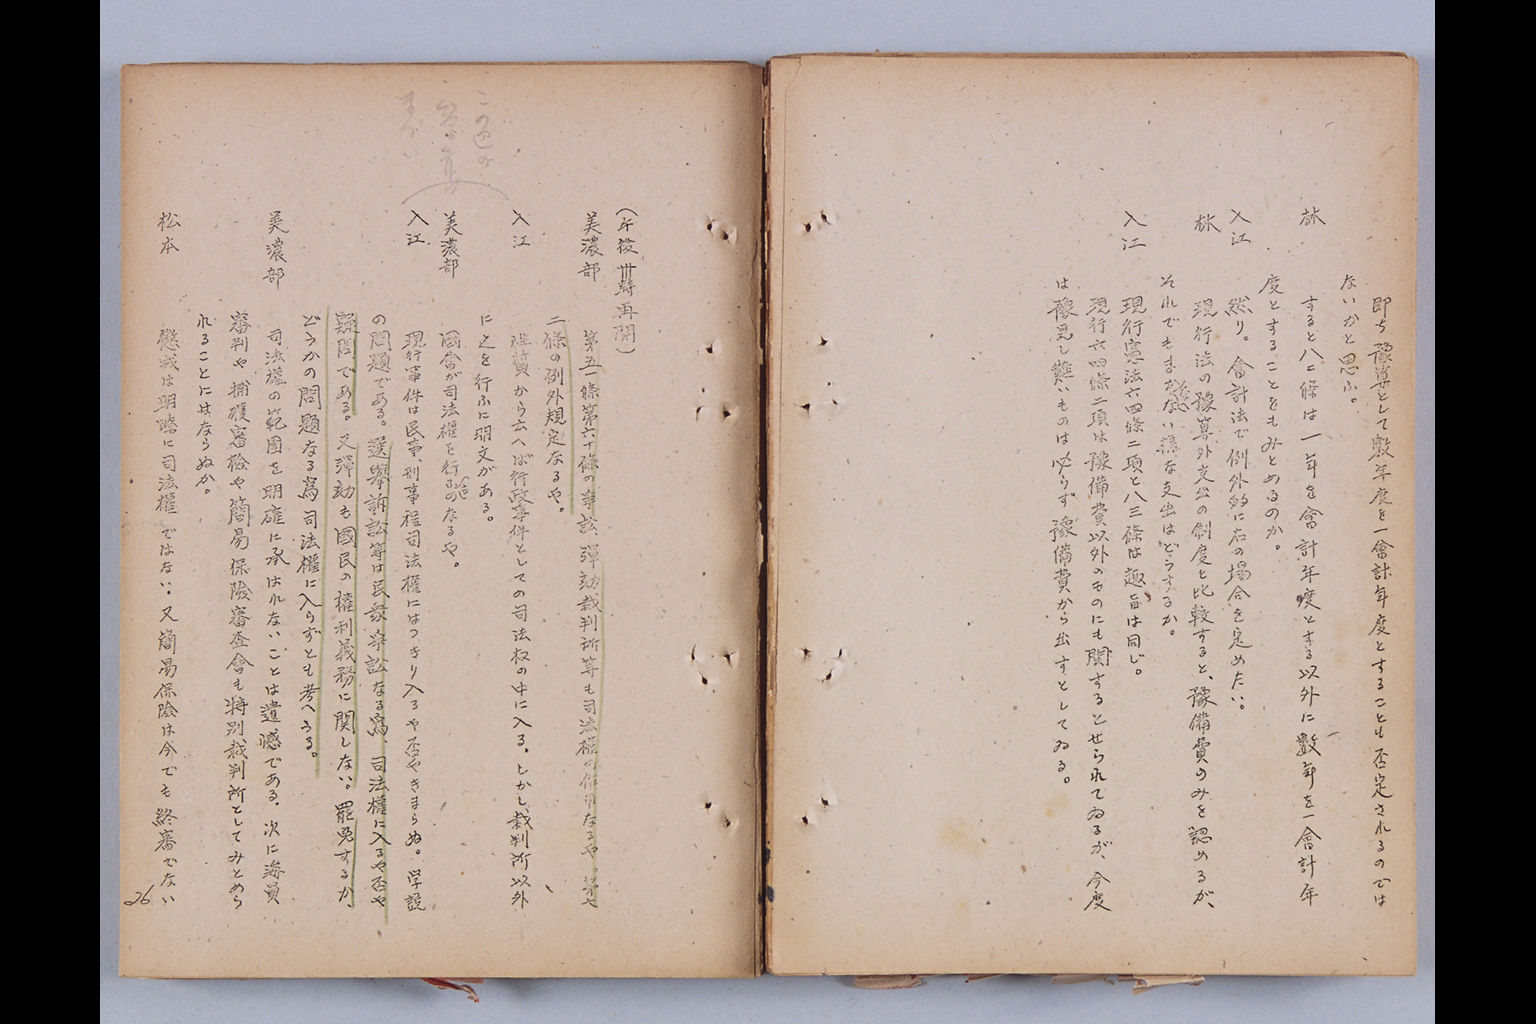 即ち豫算として數年度を一會計年度とすることも否定されるのでは
ないかと思ふ。
林 すると八二條は一年を會計年度とする以外に數年を一會計年
度とすることをもみとめるのか。
入江 然り。會計法で例外的に右の場合を定めたい。
林 現行法の豫算外支出の制度と比較すると、豫備費のみを認めるが、
それでもまかなへない樣な支出はどうするか。
入江 現行憲法六四條二項と八三條は趣旨は同じ。
現行六四條二項は豫備費以外のものにも関するとせられてゐるが、今度
は豫見し難いものは必らず豫備費から出すとしてゐる。
(午後 時再開)
美濃部 第五一條第六十條の爭訟、彈劾裁判所等も司法權の作用なるや。第七
二條の例外規定なるや。
入江 性質から云へば行政事件としての司法权の中に入る。しかし、裁判所以外
に之を行ふに明文がある。
美濃部 國會が司法權を行ふのなるや。
入江 現行事件は民事刑事程司法權にはつきり入るや否やきまらぬ。学説
の問題である。選擧訴訟等は民衆爭訟なる爲、司法權に入るや否や
疑問である。又彈劾も國民の權利義務に関しない。罷免するか、
どうかの問題なる爲司法權に入らずとも考へうる。
美濃部 司法權の範囲を明確に承はれないことは遺憾である。次に海員
審判や捕獲審檢や簡易保險審査會も特別裁判所としてみとめら
れることにはならぬか。
松本 懲戒は明瞭に司法權ではない。又簡易保險は今でも終審でない
26